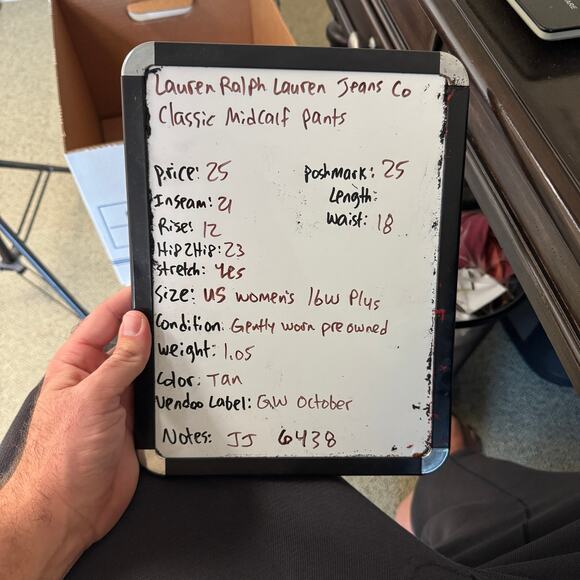 Lauren Ralph Lauren Jeans Co
Classic Midcalf pants
price: 25
poshmark: 25
Inseam: 21
Length:
Rise: 12
waist: 18
Hip2Hip: 23
stretch: yes
Size: US women's 16W Plus
Condition: Gently worn pre owned
weight: 1.05
Color: Tan
Vendoo Label: GW October
Notes: JJ 6438